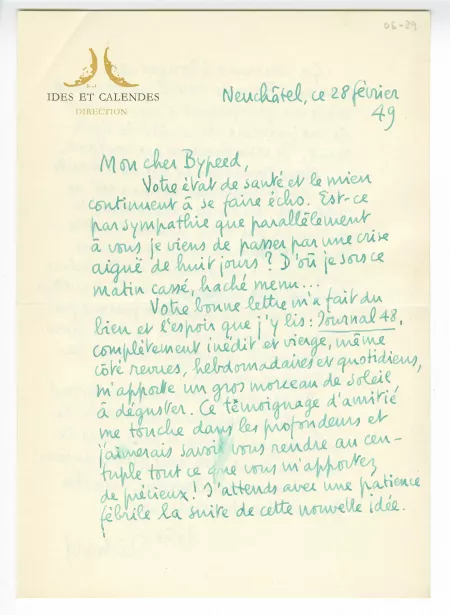 06-29
IDES ET CALENDES
DIRECTION
Neuchâtel, ce 28 février
49
Mon cher Bypeed,
Votre état de santé et le mien
continuent à se faire écho. Est-ce
par sympathie que parallèlement
à vous je viens de passer par une crise
aiguë de huit jours ? D'où je sors ce
matin cassé, haché menu...
Votre bonne lettre m'a fait du
bien et l'espoir que j'y lis : Journal 48,
complètement inédit et vierge, même
côté revues, hebdomadaires et quotidiens,
m'apporte un gros morceau de soleil
à déguster. Ce témoignage d'amitié
me touche dans les profondeurs et
j'aimerais savoir vous rendre au cen-
tuple tout ce que vous m'apportez
de précieux ! J'attends avec une patience
fébrile la suite de cette nouvelle idée.